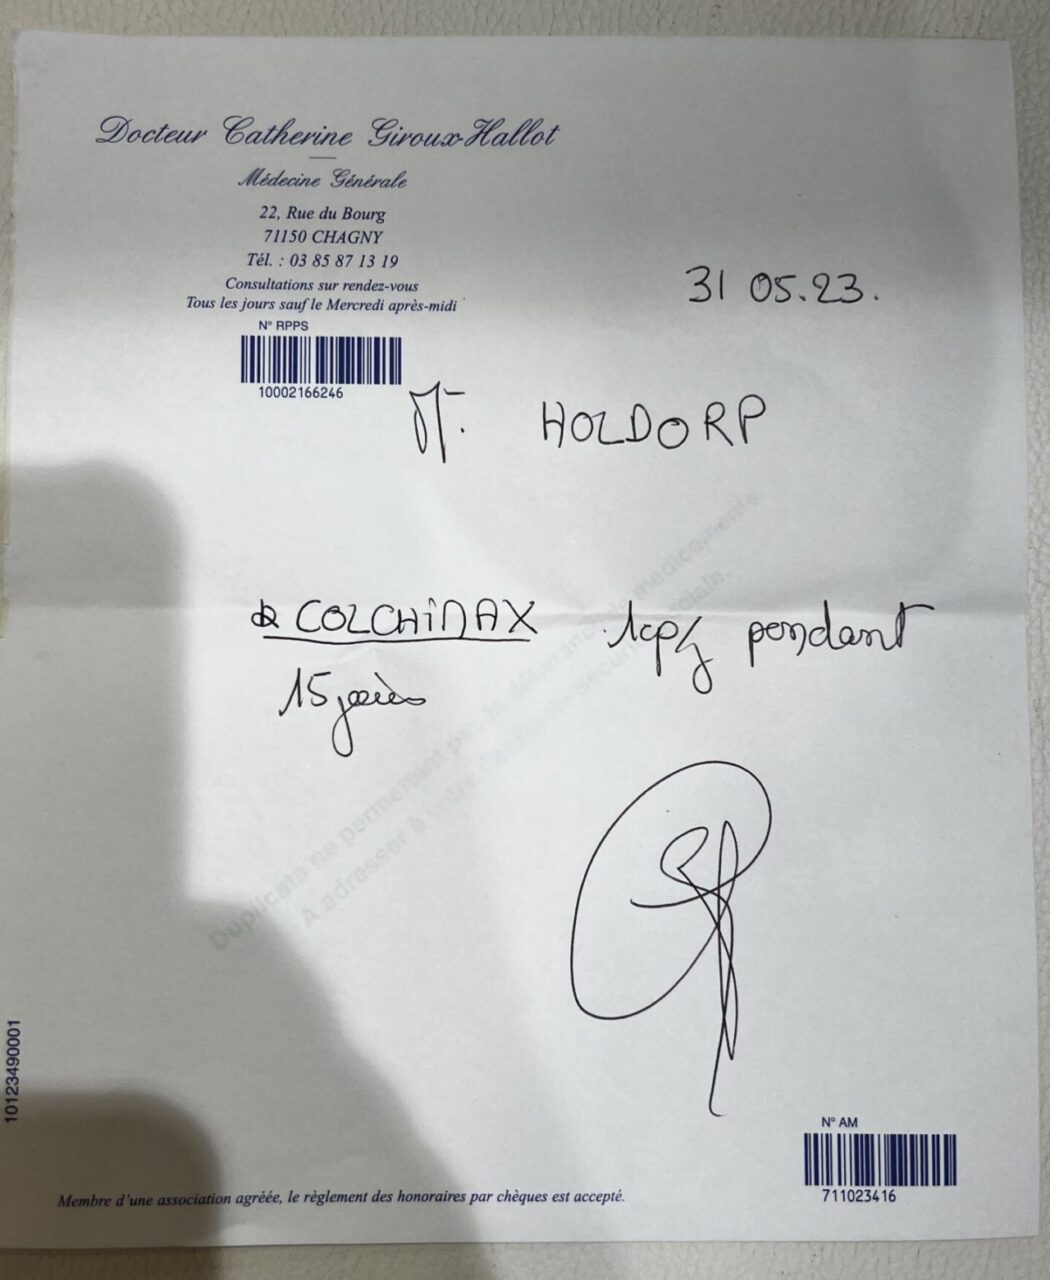 Docteur Catherine Giroux-Hallot
Médecine Générale
22, Rue du Bourg
71150 CHAGNY
Tél. : 03 85 87 13 19
Consultations sur rendez-vous
Tous les jours sauf le Mercredi après-midi
N° RPPS
10002166246
31 05.23.
Mr. HOLDORP
COLCHINAX 1cp/j pendant
15 jours
Duplicata ne permettant pas la délivrance de médicaments
A adresser à votre Caisse de Sécurité Sociale.
10123490001
N° AM
711023416
Membre d'une association agréée, le règlement des honoraires par chèques est accepté.